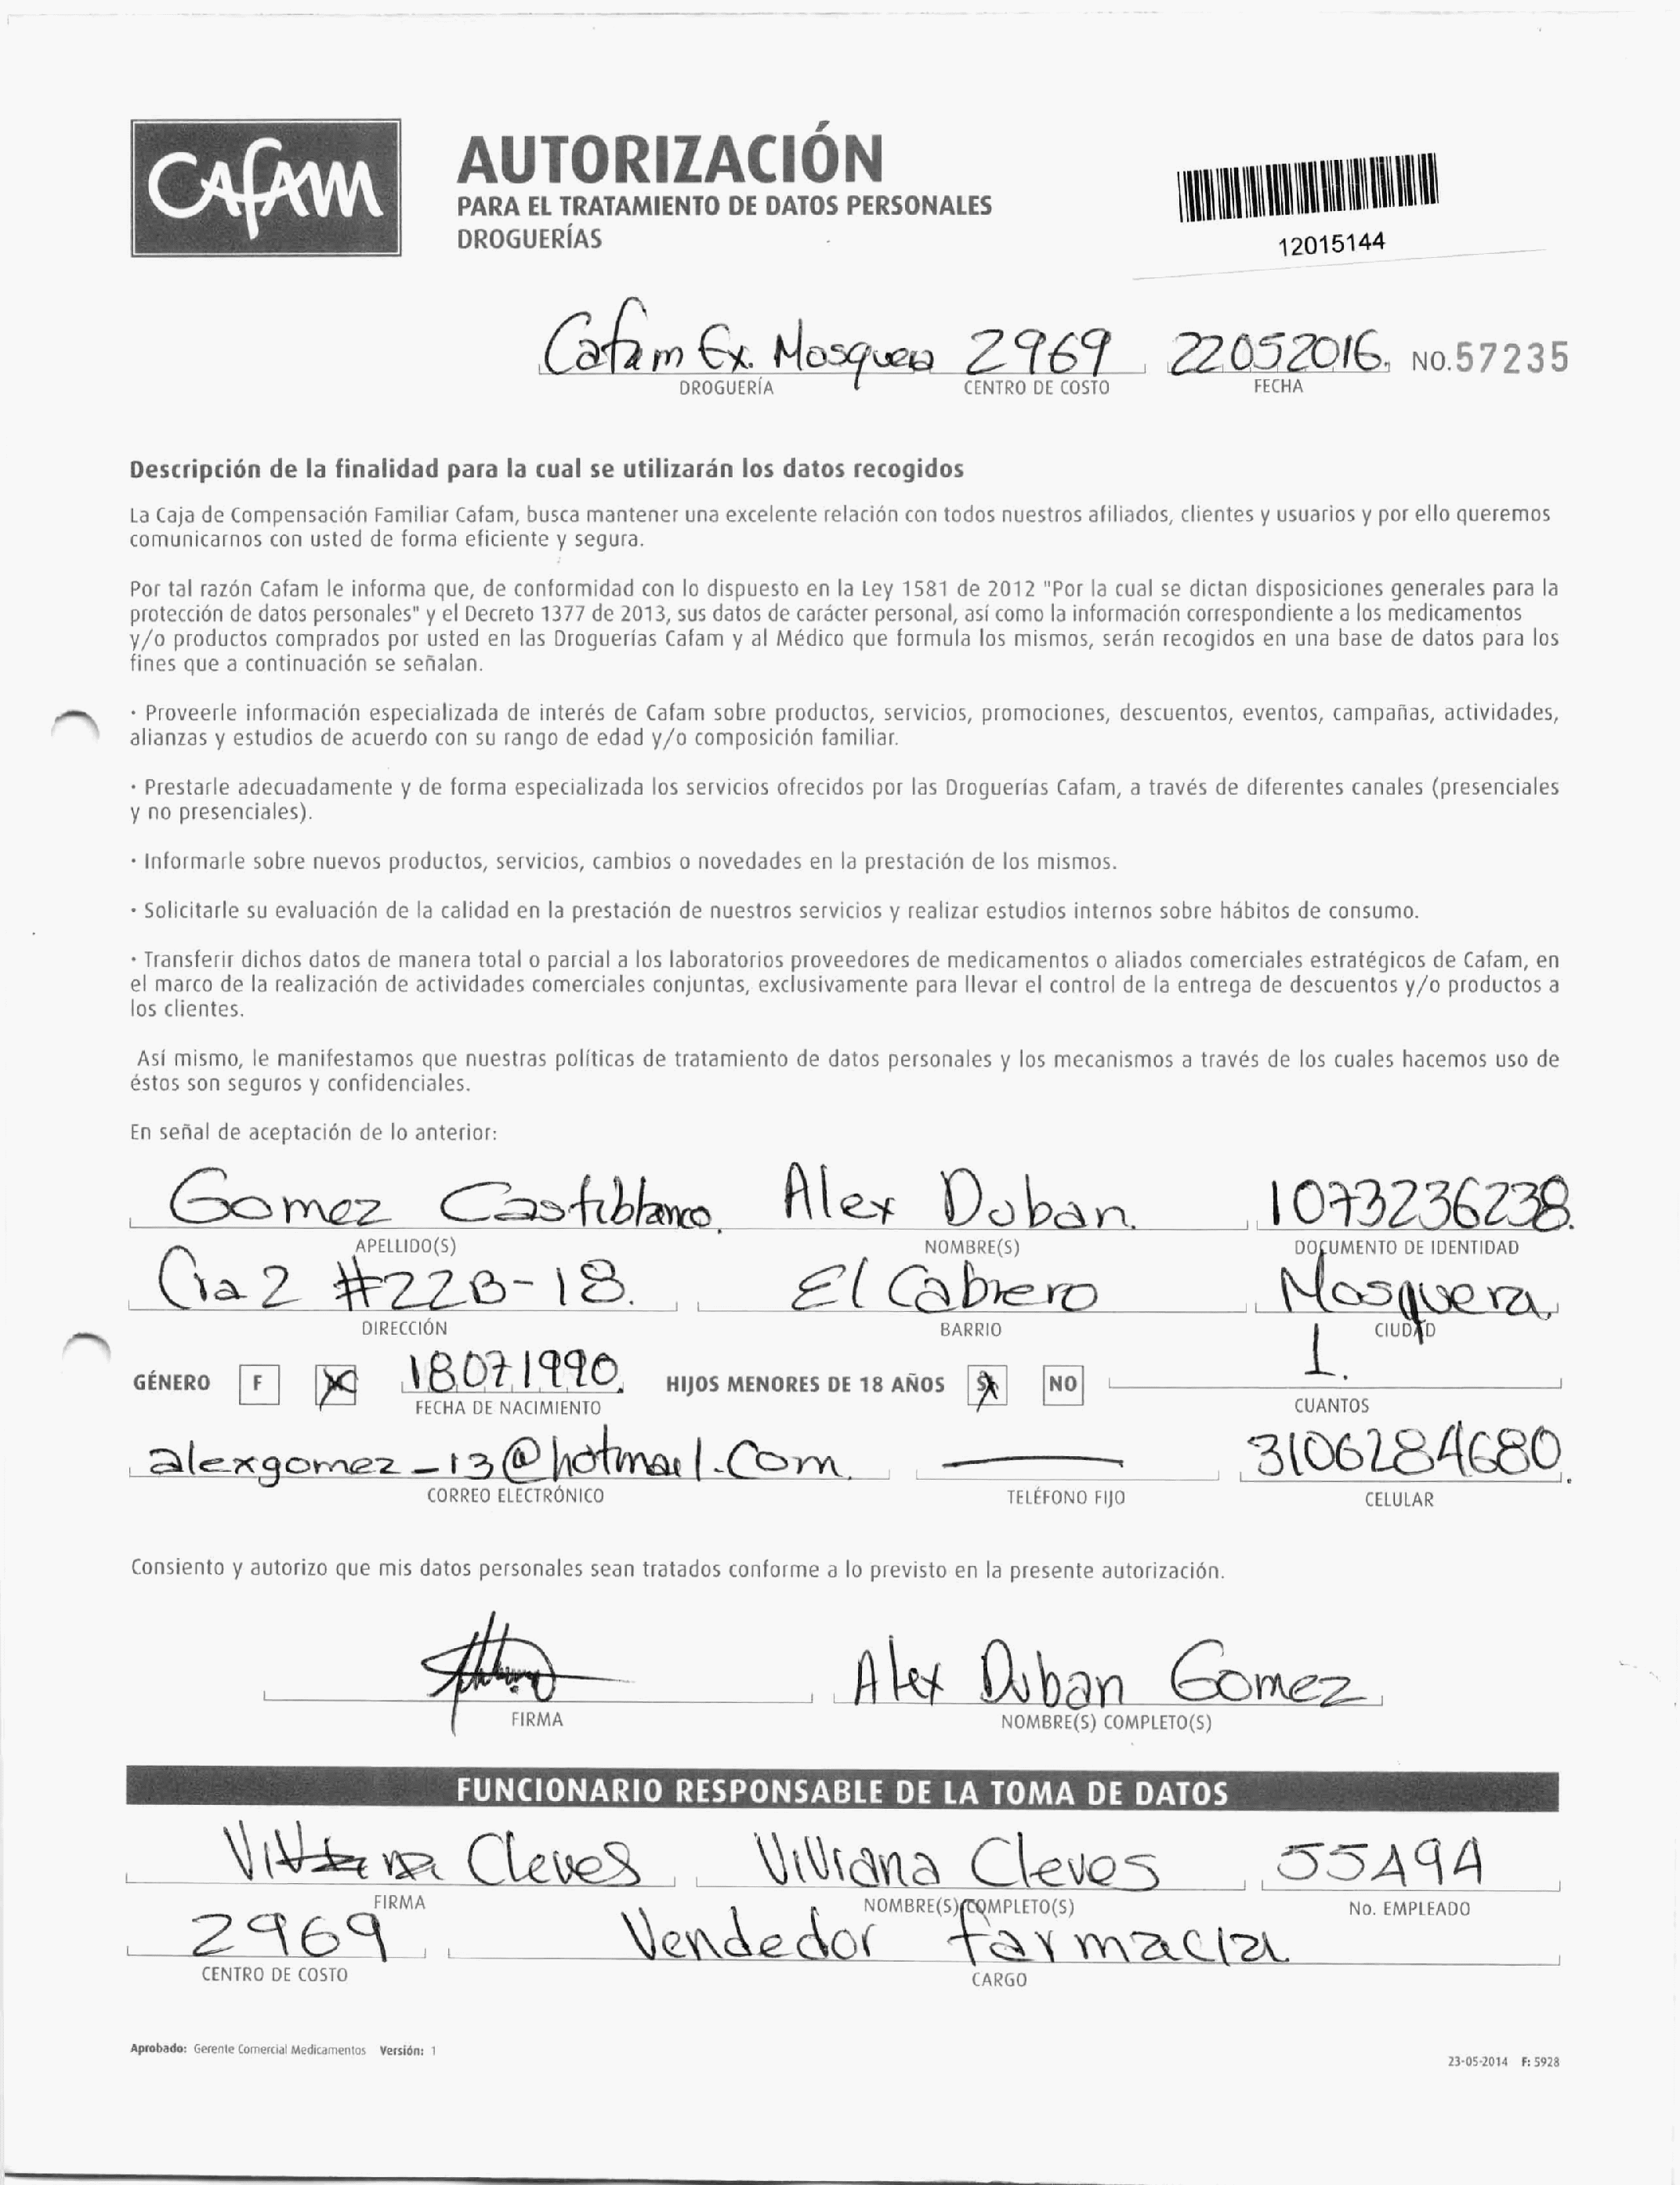 CAFAM
AUTORIZACIÓN
PARA EL TRATAMIENTO DE DATOS PERSONALES
DROGUERÍAS
12015144
Cafam Ex. Mosquera 2969 22052016. NO.57235
DROGUERÍA CENTRO DE COSTO FECHA
Descripción de la finalidad para la cual se utilizarán los datos recogidos
La Caja de Compensación Familiar Cafam, busca mantener una excelente relación con todos nuestros afiliados, clientes y usuarios y por ello queremos
comunicarnos con usted de forma eficiente y segura.
Por tal razón Cafam le informa que, de conformidad con lo dispuesto en la Ley 1581 de 2012 "Por la cual se dictan disposiciones generales para la
protección de datos personales" y el Decreto 1377 de 2013, sus datos de carácter personal, así como la información correspondiente a los medicamentos
y/o productos comprados por usted en las Droguerías Cafam y al Médico que formula los mismos, serán recogidos en una base de datos para los
fines que a continuación se señalan.
· Proveerle información especializada de interés de Cafam sobre productos, servicios, promociones, descuentos, eventos, campañas, actividades,
alianzas y estudios de acuerdo con su rango de edad y/o composición familiar.
· Prestarle adecuadamente y de forma especializada los servicios ofrecidos por las Droguerías Cafam, a través de diferentes canales (presenciales
y no presenciales).
· Informarle sobre nuevos productos, servicios, cambios o novedades en la prestación de los mismos.
· Solicitarle su evaluación de la calidad en la prestación de nuestros servicios y realizar estudios internos sobre hábitos de consumo.
· Transferir dichos datos de manera total o parcial a los laboratorios proveedores de medicamentos o aliados comerciales estratégicos de Cafam, en
el marco de la realización de actividades comerciales conjuntas, exclusivamente para llevar el control de la entrega de descuentos y/o productos a
los clientes.
Así mismo, le manifestamos que nuestras políticas de tratamiento de datos personales y los mecanismos a través de los cuales hacemos uso de
éstos son seguros y confidenciales.
En señal de aceptación de lo anterior:
Gomez Castiblanco. Alex Duban. 1073236238.
APELLIDO(S) NOMBRE(S) DOCUMENTO DE IDENTIDAD
Cra 2 #22B-18. El Cabrero Mosquera.
DIRECCIÓN BARRIO CIUDAD
GÉNERO F 18071990. HIJOS MENORES DE 18 AÑOS SI NO 1.
FECHA DE NACIMIENTO CUANTOS
alexgomez_13@hotmail.Com. 3106284680.
CORREO ELECTRÓNICO TELÉFONO FIJO CELULAR
Consiento y autorizo que mis datos personales sean tratados conforme a lo previsto en la presente autorización.
Alex Duban Gomez
FIRMA NOMBRE(S) COMPLETO(S)
FUNCIONARIO RESPONSABLE DE LA TOMA DE DATOS
Viviana Cleves Viviana Cleves 55494
FIRMA NOMBRE(S) COMPLETO(S) No. EMPLEADO
2969 Vendedor farmacia
CENTRO DE COSTO CARGO
Aprobado: Gerente Comercial Medicamentos Versión: 1
23-05-2014 F: 5928